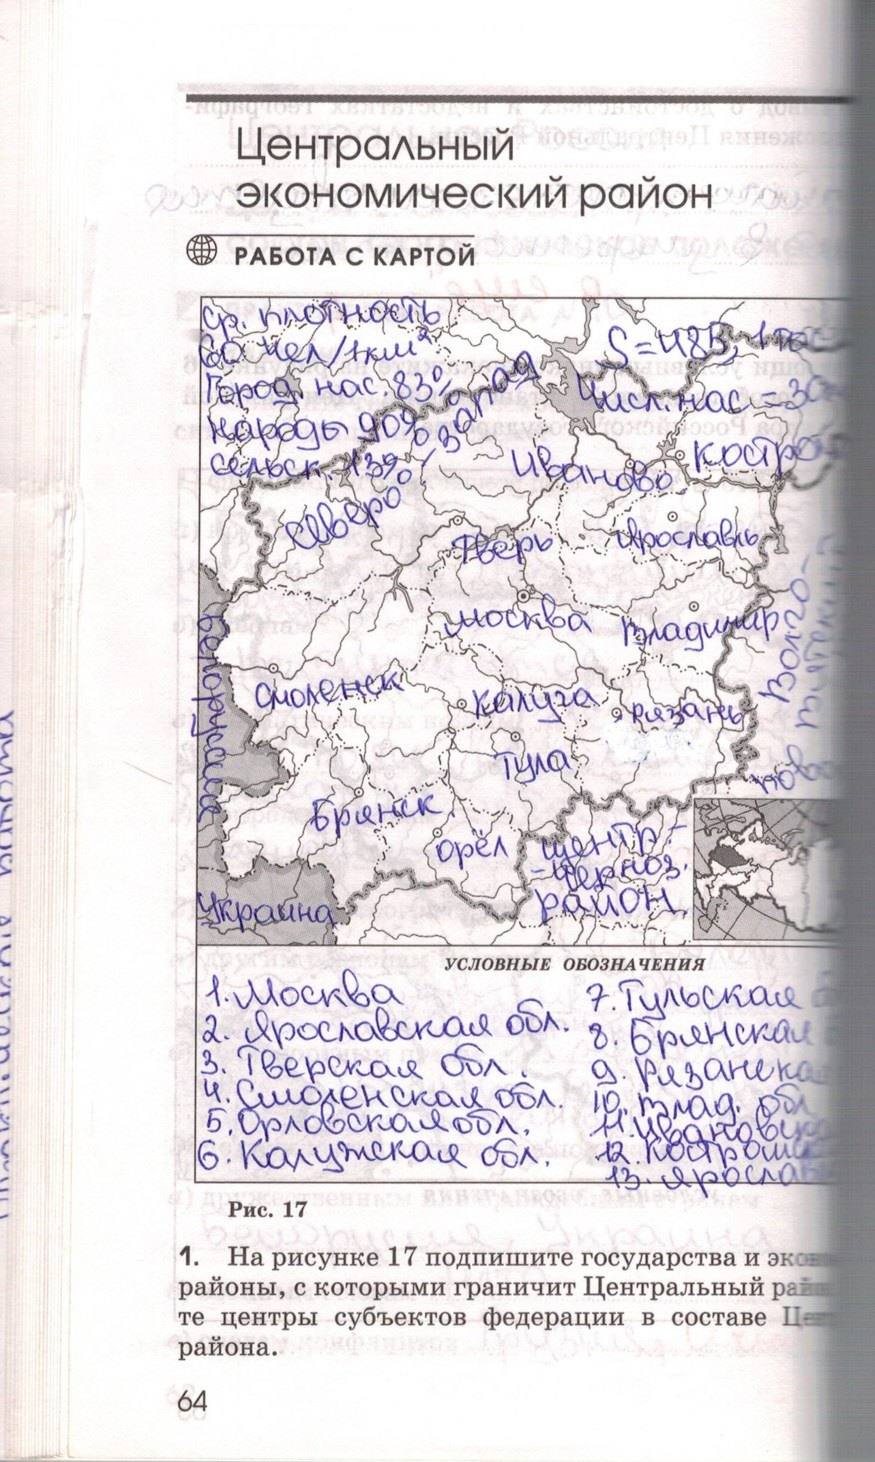 Центральный
экономический район
РАБОТА С КАРТОЙ
ср. плотность
62 чел/1км²
Город. нас. 83%
народы 90%
сельск. 13%
S=485, 1 тыс
Числ. нас. -30
Северо-запад
Иваново
Костро
Тверь
Ярославль
Москва
Владимир
Белоруссия
Волго-
Вятский
Смоленск
Калуга
Рязань
Тула
Пово
Брянск
Орёл
центр.-
-черноз.
район
Украина
УСЛОВНЫЕ ОБОЗНАЧЕНИЯ
1. Москва
2. Ярославская обл.
3. Тверская обл.
4. Смоленская обл.
5. Орловская обл.
6. Калужская обл.
7. Тульская
8. Брянская
9. Рязанская
10. Влад. обл
11. Ивановск
12. Костром
13. Ярослав
Рис. 17
1. На рисунке 17 подпишите государства и эко
районы, с которыми граничит Центральный рай
те центры субъектов федерации в составе Це
района.
64